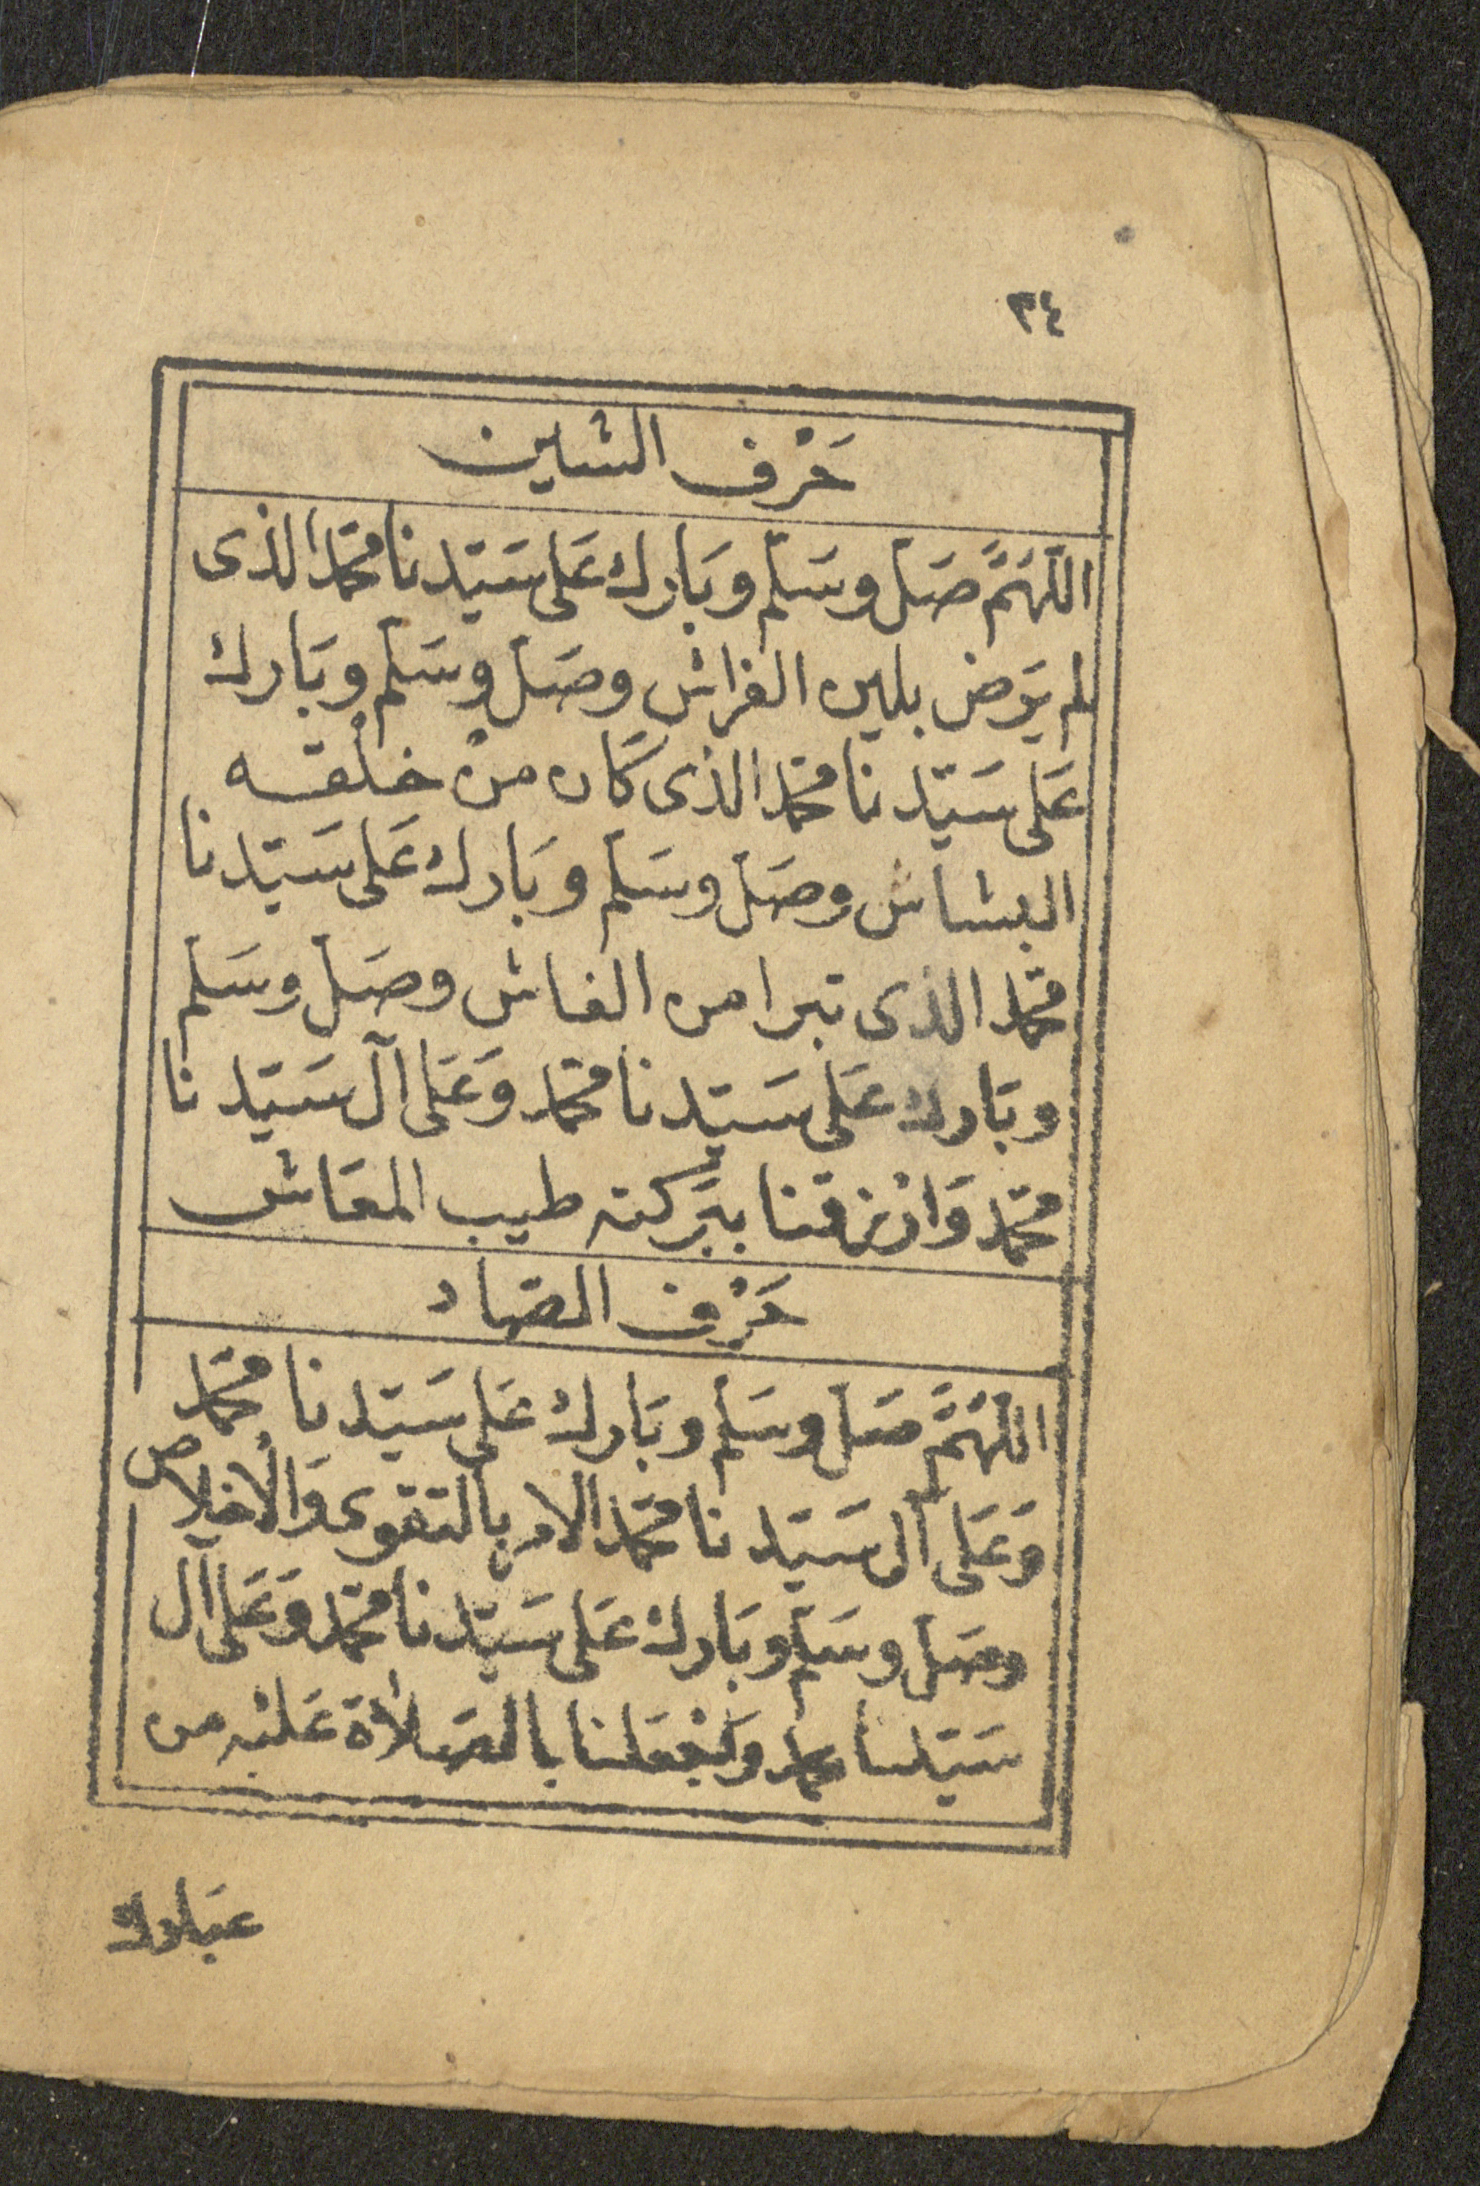 ٣٤
حَرْف الشاين
اللّهُمَّ صَل وسَلم وبَارك عَلى سَيّدنا محمّد الذى
لم يَرض بلين الفراش وصَل وسَلم وبَارك
عَلى سَيّدنا محمّد الذى كان منْ خلْقه
البشاش وصَل وسَلم وبَارك عَلى سَيّدنا
محمّد الذى تبرا من الفاش وصَل وسَلم
وبَارك عَلى سَيّدنا محمّد وَعَلى آل سَيّدنا
محمّد وَارْزقنا ببَركته طيب المعَاش
حَرْف الصّاد
اللّهُمَّ صَل وسَلم وبَارك عَلى سَيّدنا محمّد
وَعَلى آل سَيّدنا محمّد الآمر بالتقوى وَالْاخلاص
وصَل وسَلم وبَارك عَلى سَيّدنا محمّد وَعَلى آل
سَيّدنا محمد وَاجْعَلنا بالصَلاة عَليْه من
عبَادك